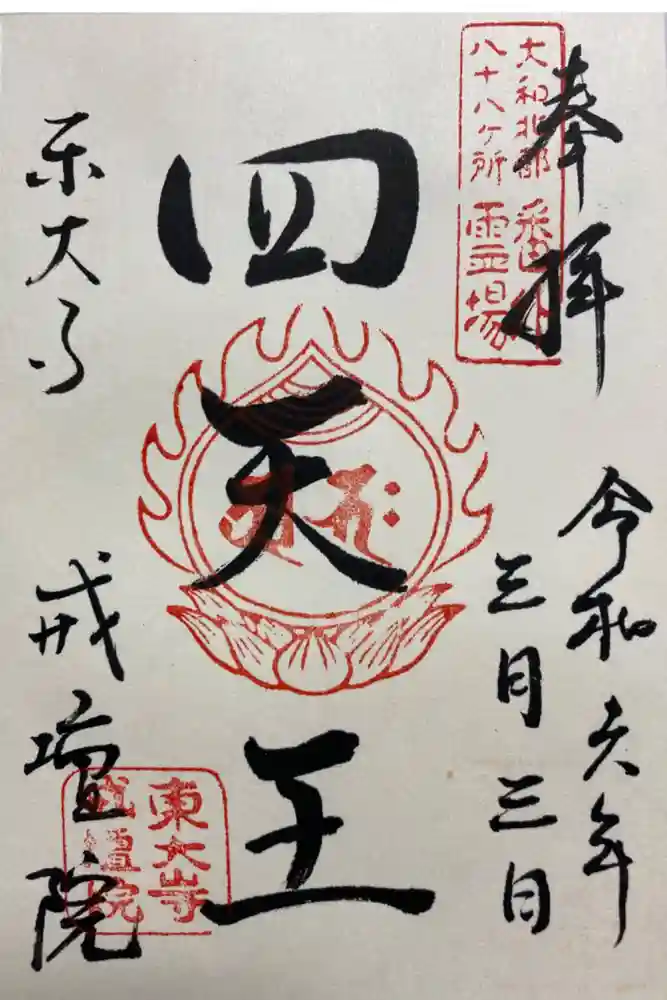 奉拝
大和北部
八十八ヶ所
番外
霊場
令和六年
三月三日
四天王
東大寺
戒壇院
東大寺
戒壇院